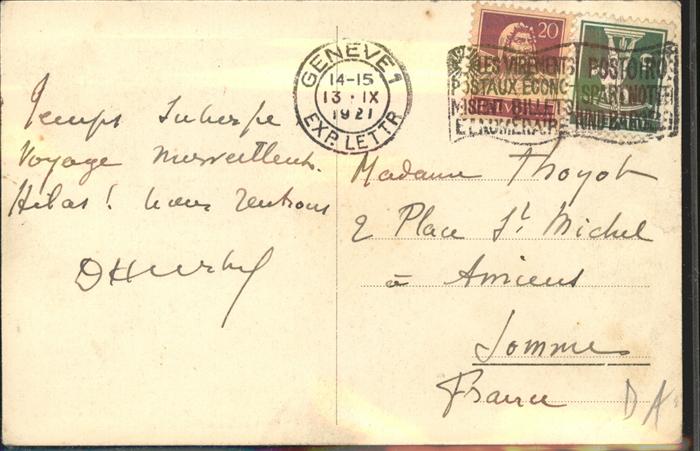 Temps superbe
Voyage merveilleux.
Hélas! nous rentrons
GENÈVE 1
14-15
13 · IX
1921
EXP. LETTR
20
LES VIREMENTS
POSTAUX ECONO
MISENT BILLETS
ET NUMERAIRE
Madame Thoyot
2 Place St Michel
à Amiens
Somme
France
DA